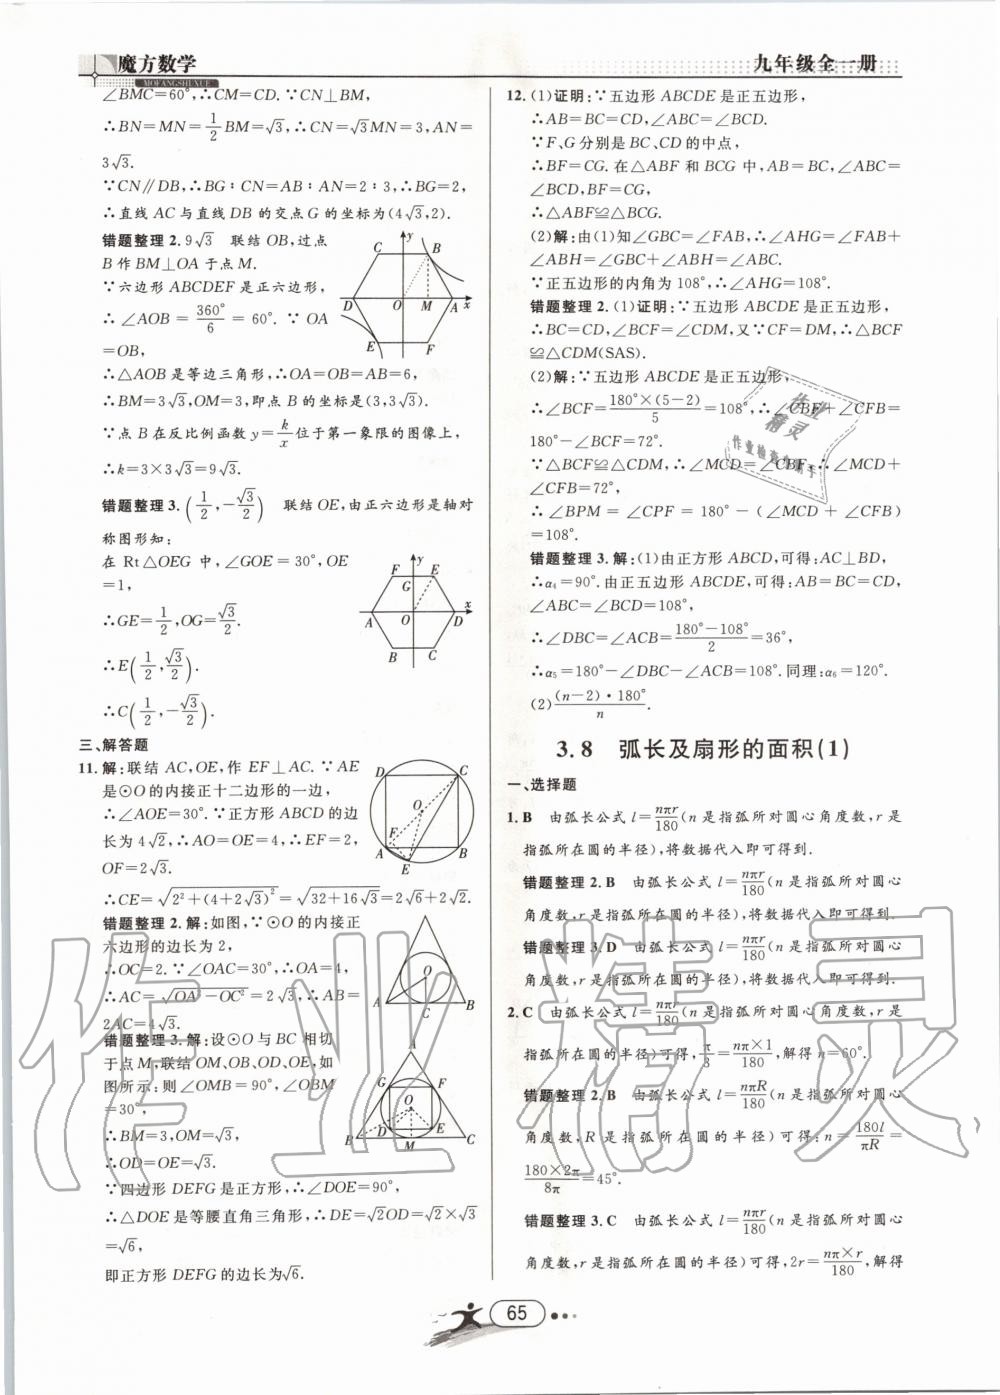 魔方数学
MOFANGSHUXUE
九年级全一册
∠BMC=60°,∴CM=CD.∵CN⊥BM,
∴BN=MN=1/2BM=√3,∴CN=√3MN=3,AN=
3√3.
∵CN∥DB,∴BG∶CN=AB∶AN=2∶3,∴BG=2,
∴直线AC与直线DB的交点G的坐标为(4√3,2).
错题整理2.9√3 联结OB,过点
B作BM⊥OA于点M.
∵六边形ABCDEF是正六边形,
∴∠AOB=360°/6=60°.∵OA
=OB,
∴△AOB是等边三角形,∴OA=OB=AB=6,
∴BM=3√3,OM=3,即点B的坐标是(3,3√3).
∵点B在反比例函数y=k/x位于第一象限的图像上,
∴k=3×3√3=9√3.
错题整理3.(1/2,-√3/2) 联结OE,由正六边形是轴对
称图形知:
在Rt△OEG中,∠GOE=30°,OE
=1,
∴GE=1/2,OG=√3/2.
∴E(1/2,√3/2).
∴C(1/2,-√3/2).
三、解答题
11.解:联结AC,OE,作EF⊥AC.∵AE
是⊙O的内接正十二边形的一边,
∴∠AOE=30°.∵正方形ABCD的边
长为4√2,∴AO=OE=4,∴EF=2,
OF=2√3.
∴CE=√(2²+(4+2√3)²)=√(32+16√3)=2√6+2√2.
错题整理2.解:如图,∵⊙O的内接正
六边形的边长为2,
∴OC=2.∵∠OAC=30°,∴OA=4,
∴AC=√(OA²-OC²)=2√3,∴AB=
2AC=4√3.
错题整理3.解:设⊙O与BC相切
于点M,联结OM,OB,OD,OE,如
图所示:则∠OMB=90°,∠OBM
=30°,
∴BM=3,OM=√3,
∴OD=OE=√3.
∵四边形DEFG是正方形,∴∠DOE=90°,
∴△DOE是等腰直角三角形,∴DE=√2OD=√2×√3
=√6,
即正方形DEFG的边长为√6.
12.(1)证明:∵五边形ABCDE是正五边形,
∴AB=BC=CD,∠ABC=∠BCD.
∵F、G分别是BC、CD的中点,
∴BF=CG.在△ABF和BCG中,AB=BC,∠ABC=
∠BCD,BF=CG,
∴△ABF≌△BCG.
(2)解:由(1)知∠GBC=∠FAB,∴∠AHG=∠FAB+
∠ABH=∠GBC+∠ABH=∠ABC.
∵正五边形的内角为108°,∴∠AHG=108°.
错题整理2.(1)证明:∵五边形ABCDE是正五边形,
∴BC=CD,∠BCF=∠CDM,又∵CF=DM,∴△BCF
≌△CDM(SAS).
(2)解:∵五边形ABCDE是正五边形,
∴∠BCF=180°×(5-2)/5=108°,∴∠CBF+∠CFB=
180°-∠BCF=72°.
∵△BCF≌△CDM,∴∠MCD=∠CBF,∴∠MCD+
∠CFB=72°,
∴∠BPM=∠CPF=180°-(∠MCD+∠CFB)
=108°.
错题整理3.解:(1)由正方形ABCD,可得:AC⊥BD,
∴α₄=90°.由正五边形ABCDE,可得:AB=BC=CD,
∠ABC=∠BCD=108°,
∴∠DBC=∠ACB=180°-108°/2=36°,
α₅=180°-∠DBC-∠ACB=108°.同理:α₆=120°.
(2)(n-2)·180°/n.
3.8 弧长及扇形的面积(1)
一、选择题
1.B 由弧长公式l=nπr/180(n是指弧所对圆心角度数,r是
指弧所在圆的半径),将数据代入即可得到.
错题整理2.B 由弧长公式l=nπr/180(n是指弧所对圆心
角度数,r是指弧所在圆的半径),将数据代入即可得到.
错题整理3.D 由弧长公式l=nπr/180(n是指弧所对圆心
角度数,r是指弧所在圆的半径),将数据代入即可得到.
2.C 由弧长公式l=nπr/180(n是指弧所对圆心角度数,r是
指弧所在圆的半径)可得,π/3=nπ×1/180,解得n=60°.
错题整理2.B 由弧长公式l=nπR/180(n是指弧所对圆心
角度数,R是指弧所在圆的半径)可得:n=180l/πR=
180×2π/8π=45°.
错题整理3.C 由弧长公式l=nπr/180(n是指弧所对圆心
角度数,r是指弧所在圆的半径)可得,2r=nπ×r/180,解得
65
作业精灵
作业检查小助手